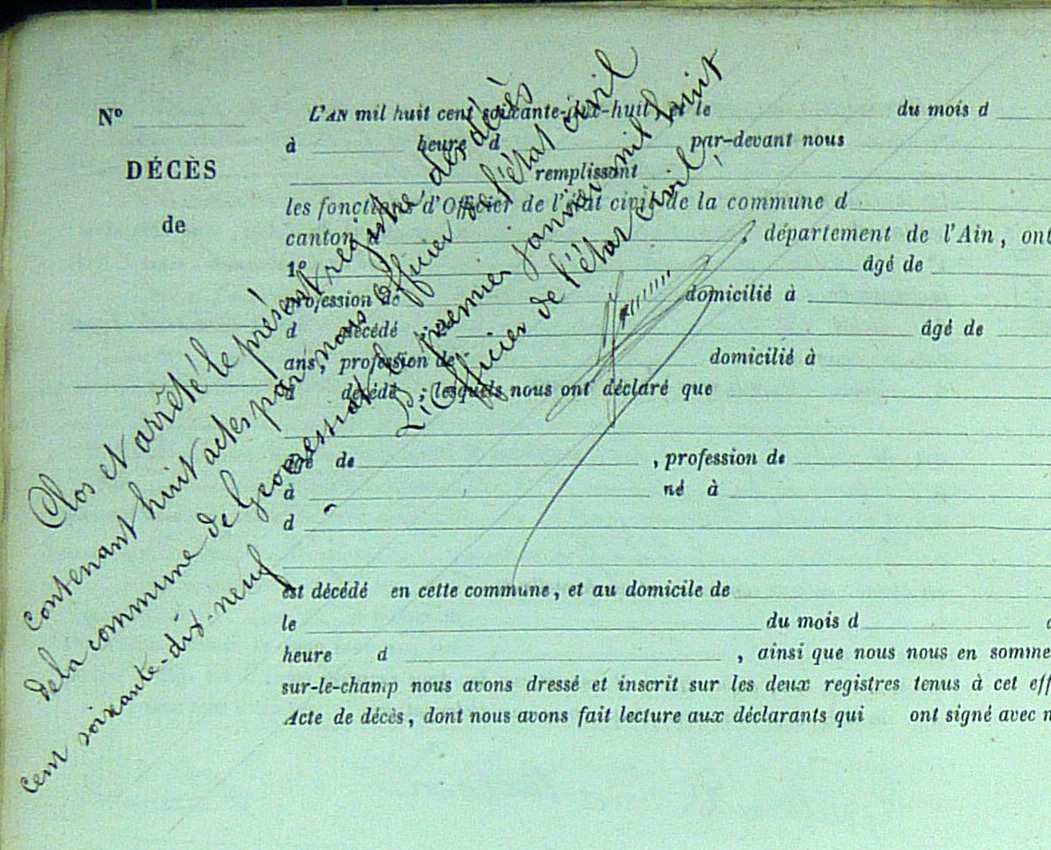 Nº
DÉCÈS
de
L'AN mil huit cent soixante-dix-huit et le du mois d
à heure d par-devant nous
remplissant
les fonctions d'Officier de l'état civil de la commune d
canton d , département de l'Ain, ont
1º âgé de
profession de domicilié à
d décédé ; âgé de
ans, profession de domicilié à
d décédé ; lesquels nous ont déclaré que
âgé de , profession de
à né à
d
est décédé en cette commune, et au domicile de
le du mois d
heure d , ainsi que nous nous en somme
sur-le-champ nous avons dressé et inscrit sur les deux registres tenus à cet eff
Acte de décès, dont nous avons fait lecture aux déclarants qui ont signé avec n
Clos et arrêté le présent registre des décès
contenant huit actes par nous officier de l'état civil
de la commune de Geovressiat le premier janvier mil huit
cent soixante-dix-neuf
L'Officier de l'état civil,